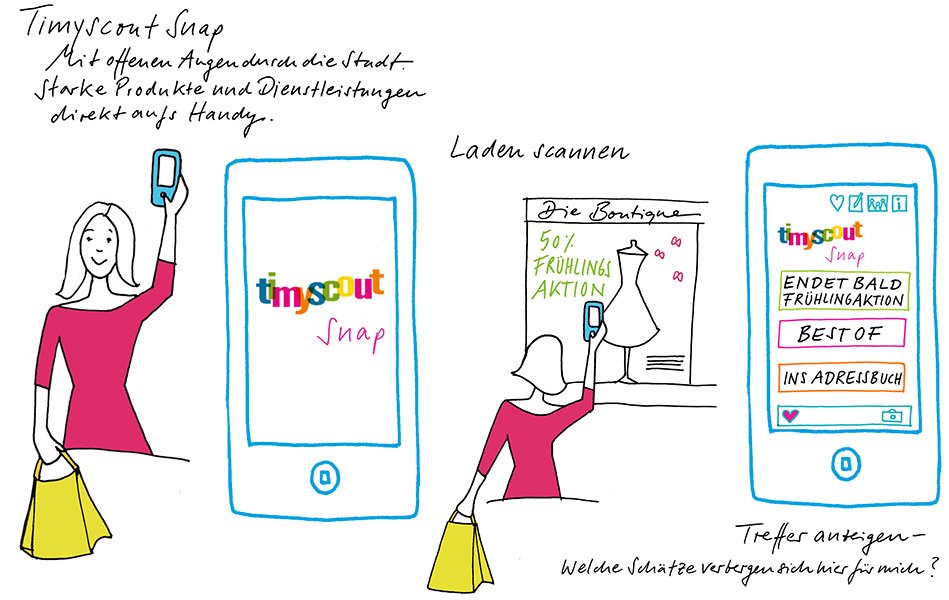 Timyscout Snap
Mit offenen Augen durch die Stadt.
Starke Produkte und Dienstleistungen
direkt aufs Handy.
timyscout
Snap
Laden scannen
Die Boutique
50%
FRÜHLINGS
AKTION
timyscout
Snap
ENDET BALD
FRÜHLINGAKTION
BEST OF
INS ADRESSBUCH
Treffer anzeigen –
Welche Schätze verbergen sich hier für mich?